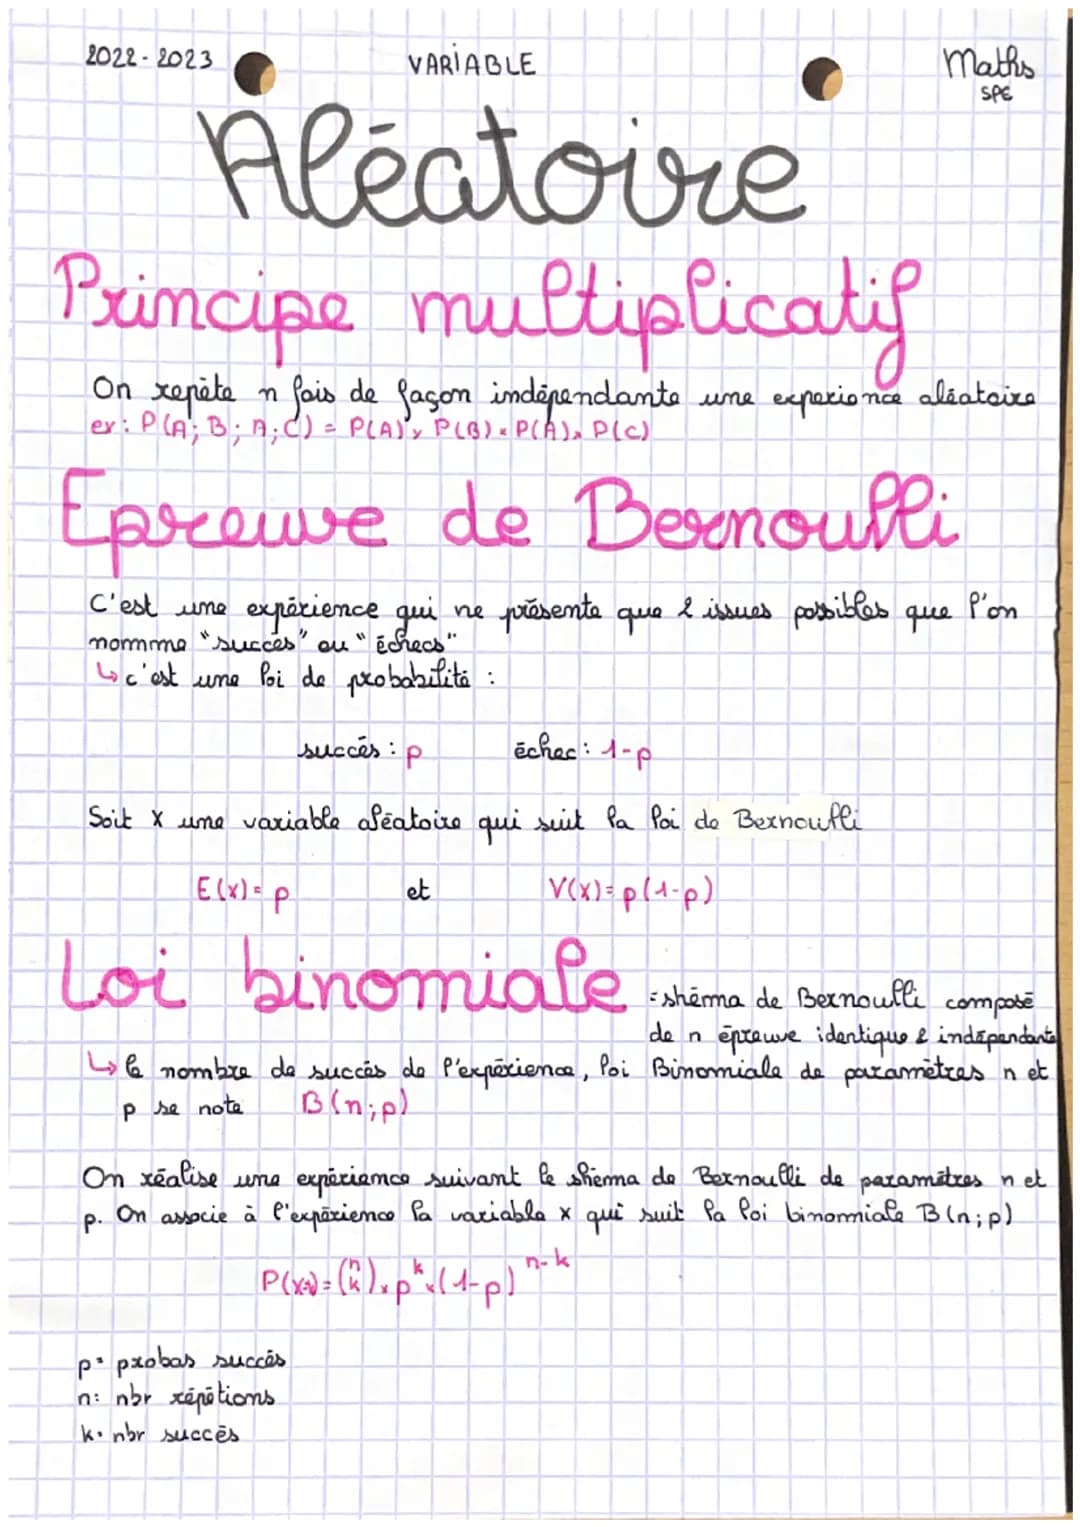 2022-2023 VARIABLE Maths
SPE
Aléatoire
Principe multiplicatif
On repète n fois de façon indépendante une experience aléatoire
ex: P(A; B; A; C) = P(A) × P(B) × P(A) × P(C)
Epreuve de Bernoulli
C'est une expérience qui ne présente que 2 issues possibles que l'on
nomme "succès" ou "échecs"
↳ c'est une loi de probabilité :
succès : p échec : 1-p
Soit X une variable aléatoire qui suit la loi de Bernoulli
E(X) = p et V(X) = p(1-p)
Loi binomiale = shéma de Bernoulli composé
de n épreuve identique & indépendante
↳ le nombre de succès de l'expérience, loi Binomiale de paramètres n et
p se note B(n;p)
On réalise une expérience suivant le shéma de Bernoulli de paramètres n et
p. On associe à l'expérience la variable X qui suit la loi binomiale B(n;p)
P(X=k) = (n k) × p^k × (1-p)^n-k
p = probas succès
n : nbr répétions
k = nbr succès